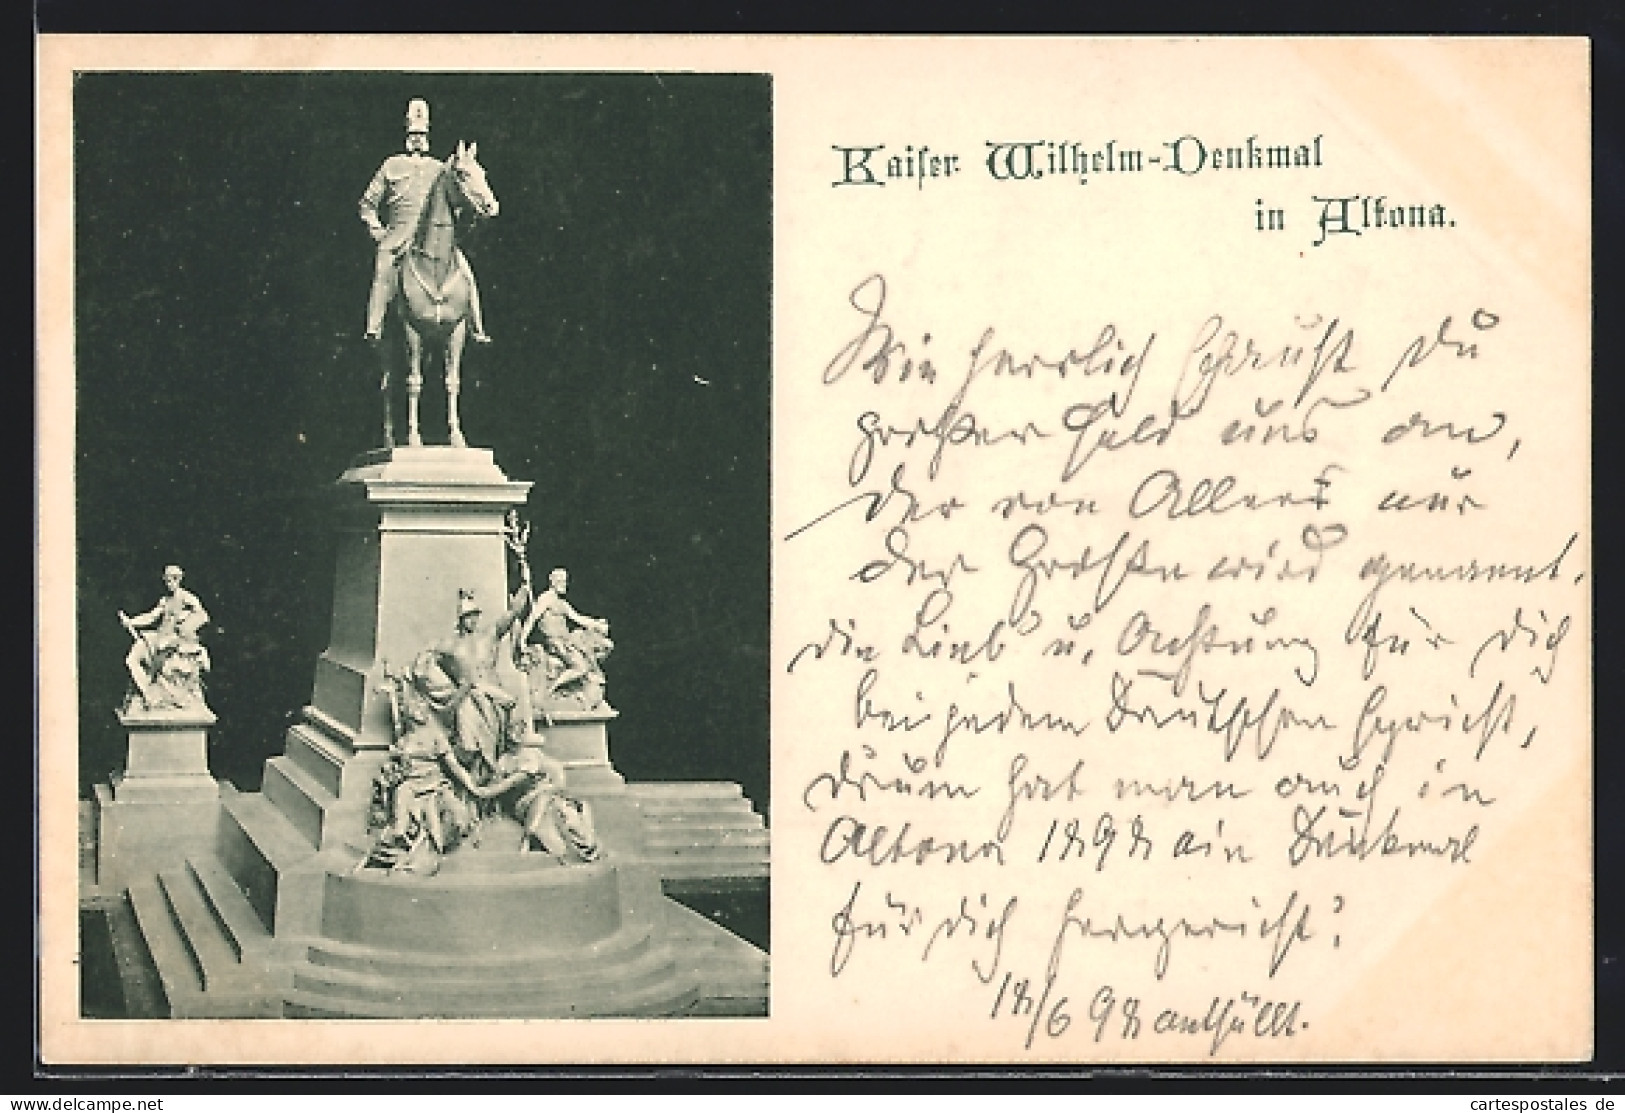 Kaiser Wilhelm-Denkmal
in Altona.
Wie herrlich schaust Du
großer Held uns an,
der von Allen nur
der Große wird genannt.
die Lieb' u. Achtung für Dich
bei jedem Deutschen spricht,
drum hat man auch in
Altona 1898 ein Denkmal
für Dich hergericht!
18/6 98 enthüllt.
hippostcard.com
cartespostales de